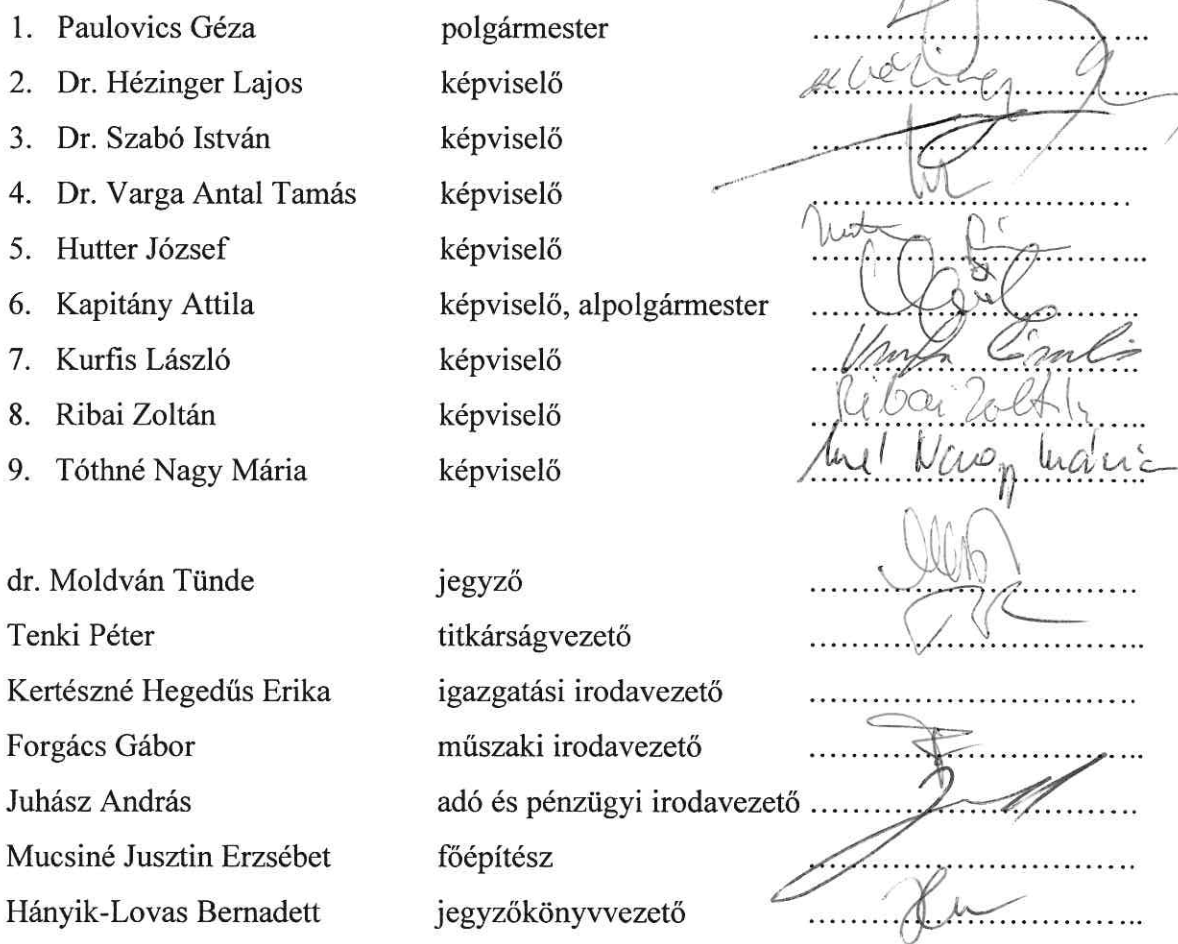 1. Paulovics Géza polgármester ..........
2. Dr. Hézinger Lajos képviselő ..........
3. Dr. Szabó István képviselő ..........
4. Dr. Varga Antal Tamás képviselő ..........
5. Hutter József képviselő ..........
6. Kapitány Attila képviselő, alpolgármester ..........
7. Kurfis László képviselő ..........
8. Ribai Zoltán képviselő .......... Ribai Zoltán
9. Tóthné Nagy Mária képviselő .......... Nagy Mária
dr. Moldván Tünde jegyző ..........
Tenki Péter titkárságvezető ..........
Kertészné Hegedűs Erika igazgatási irodavezető ..........
Forgács Gábor műszaki irodavezető ..........
Juhász András adó és pénzügyi irodavezető ..........
Mucsiné Jusztin Erzsébet főépítész ..........
Hányik-Lovas Bernadett jegyzőkönyvvezető ..........